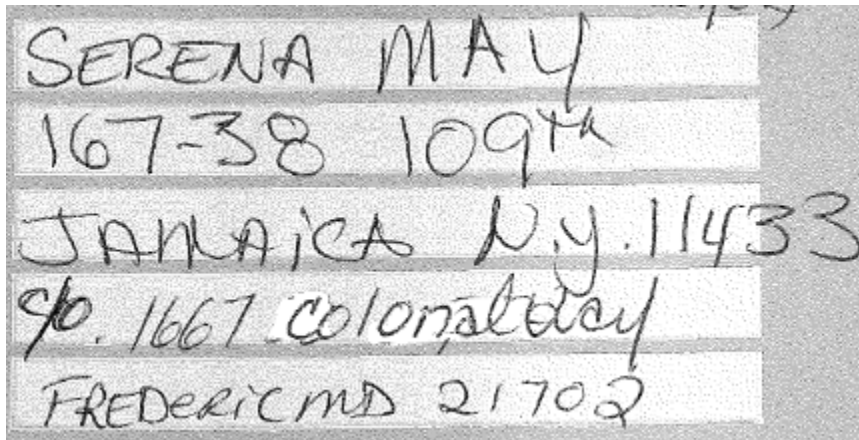 SERENA MAY
167-38 109th
JAMAiCA N.y. 11433
c/o. 1667 Colonial Way
FREDeRiC MD 21702